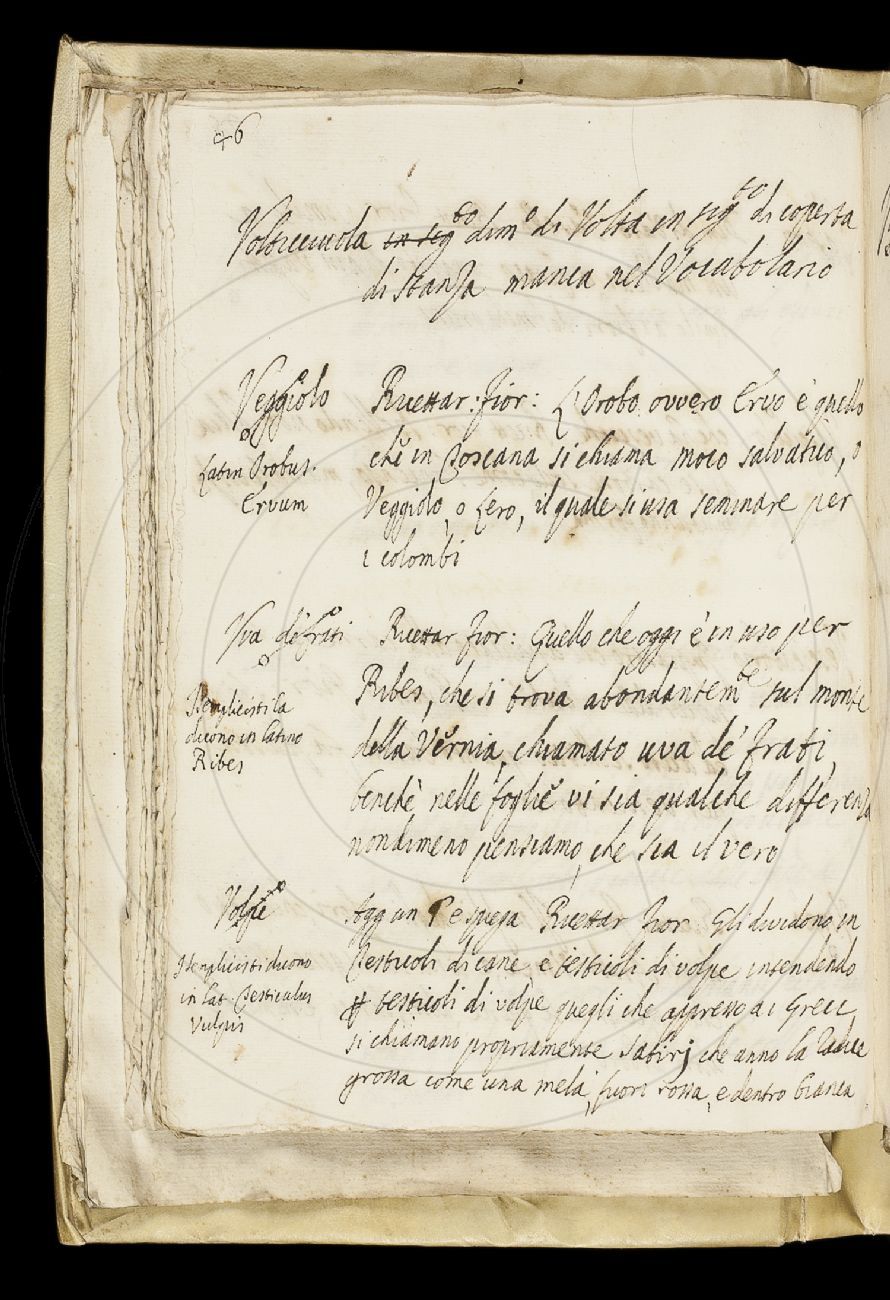 46
Volticciuola in sig.to dim.o di Volta in sig.to di coperta
di stanza manca nel Vocabolario
Veggiolo
Latin Orobus.
Ervum
Ricettar: fior: L'Orobo ovvero Ervo è quello
che in Toscana si chiama moco salvatico, o
Veggiolo, o Lero, il quale si usa seminare per
i colombi
Vva de' frati
Semplicisti la
dicono in latino
Ribes
Ricettar fior: Quello che oggi è in uso per
Ribes, che si trova abondantem.te sul monte
della Vernia, chiamato uva de' frati,
benchè nelle foglie vi sia qualche differenza
nondimeno pensiamo, che sia il vero
Volpe
Semplicisti dicono
in lat. Testiculus
Vulpis
Agg un § e spiega Ricettar fior Gli dividono in
Testicoli di cane e testicoli di volpe intendendo
testicoli di volpe quegli che appresso a i Greci
si chiamano propriamente satirj che anno la radice
grossa come una mela, fuori rossa, e dentro bianca